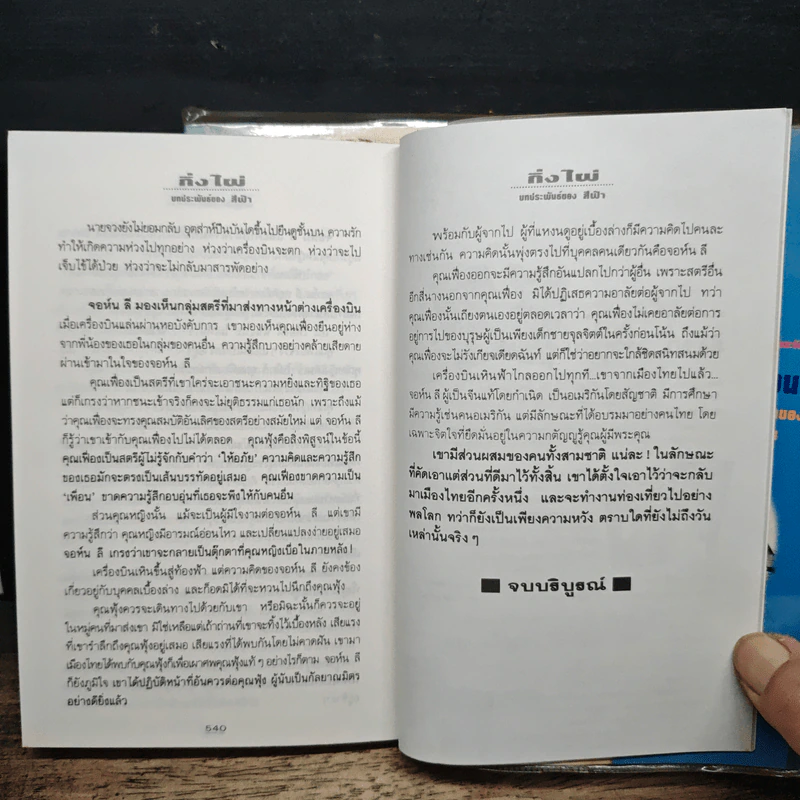 กิ่งไผ่
บทประพันธ์ของ สีฟ้า
นายจวงยังไม่ยอมกลับ อุตส่าห์ปีนบันไดขึ้นไปยืนดูชั้นบน ความรัก
ทำให้เกิดความห่วงไปทุกอย่าง ห่วงว่าเครื่องบินจะตก ห่วงว่าจะไป
เจ็บไข้ได้ป่วย ห่วงว่าจะไม่กลับมาสารพัดอย่าง
จอห์น ลี มองเห็นกลุ่มสตรีที่มาส่งทางหน้าต่างเครื่องบิน
เมื่อเครื่องบินแล่นผ่านหอบังคับการ เขามองเห็นคุณเฟื่องยืนอยู่ห่าง
จากพี่น้องของเธอในกลุ่มของคนอื่น ความรู้สึกบางอย่างคล้ายเสียดาย
ผ่านเข้ามาในใจของจอห์น ลี
คุณเฟื่องเป็นสตรีที่เขาใคร่จะเอาชนะความหยิ่งและทิฐิของเธอ
แต่ก็เกรงว่าหากชนะเข้าจริงก็คงจะไม่ยุติธรรมแก่เธอนัก เพราะถึงแม้
ว่าคุณเฟื่องจะทรงคุณสมบัติอันเลิศของสตรีอย่างสมัยใหม่ แต่ จอห์น ลี
ก็รู้ว่าเขาเข้ากับคุณเฟื่องไปไม่ได้ตลอด คุณฟุ้งคือสิ่งพิสูจน์ในข้อนี้
คุณเฟื่องเป็นสตรีผู้ไม่รู้จักกับคำว่า 'ให้อภัย' ความคิดและความรู้สึก
ของเธอมักจะตรงเป็นเส้นบรรทัดอยู่เสมอ คุณเฟื่องขาดความเป็น
'เพื่อน' ขาดความรู้สึกอบอุ่นที่เธอจะพึงให้กับคนอื่น
ส่วนคุณหญิงนั้น แม้จะเป็นผู้มีใจงามต่อจอห์น ลี แต่เขามี
ความรู้สึกว่า คุณหญิงมีอารมณ์อ่อนไหว และเปลี่ยนแปลงง่ายอยู่เสมอ
จอห์น ลี เกรงว่าเขาจะกลายเป็นตุ๊กตาที่คุณหญิงเบื่อในภายหลัง!
เครื่องบินเหินขึ้นสู่ท้องฟ้า แต่ความคิดของจอห์น ลี ยังคงข้อง
เกี่ยวอยู่กับบุคคลเบื้องล่าง และก็อดมิได้ที่จะหวนไปนึกถึงคุณฟุ้ง
คุณฟุ้งควรจะเดินทางไปด้วยกับเขา หรือมิฉะนั้นก็ควรจะอยู่
ในหมู่คนที่มาส่งเขา มิใช่เหลือแต่เถ้าถ่านที่เขาจะทิ้งไว้เบื้องหลัง เสียแรง
ที่เขารำลึกถึงคุณฟุ้งอยู่เสมอ เสียแรงที่ได้พบกันโดยไม่คาดฝัน เขามา
เมืองไทยได้พบกับคุณฟุ้งก็เพื่อเผาศพคุณฟุ้งแท้ ๆ อย่างไรก็ตาม จอห์น ลี
ก็ยังภูมิใจ เขาได้ปฏิบัติหน้าที่อันควรต่อคุณฟุ้ง ผู้นับเป็นกัลยาณมิตร
อย่างดียิ่งแล้ว
540
กิ่งไผ่
บทประพันธ์ของ สีฟ้า
พร้อมกับผู้จากไป ผู้ที่แหงนดูอยู่เบื้องล่างก็มีความคิดไปคนละ
ทางเช่นกัน ความคิดนั้นพุ่งตรงไปที่บุคคลคนเดียวกันคือจอห์น ลี
คุณเฟื่องออกจะมีความรู้สึกอันแปลกไปกว่าผู้อื่น เพราะสตรีอื่น
อีกสี่นางนอกจากคุณเฟื่อง มิได้ปฏิเสธความอาลัยต่อผู้จากไป ทว่า
คุณเฟื่องนั้นเถียงตนเองอยู่ตลอดเวลาว่า คุณเฟื่องไม่เคยอาลัยต่อการ
อยู่การไปของบุรุษผู้เป็นเพียงเด็กชายจุลจิตต์ในครั้งก่อนโน้น ถึงแม้ว่า
คุณเฟื่องจะไม่รังเกียจเดียดฉันท์ แต่ก็ใช่ว่าอยากจะใกล้ชิดสนิทสนมด้วย
เครื่องบินเหินฟ้าไกลออกไปทุกที...เขาจากเมืองไทยไปแล้ว...
จอห์น ลี ผู้เป็นจีนแท้โดยกำเนิด เป็นอเมริกันโดยสัญชาติ มีการศึกษา
มีความรู้เช่นคนอเมริกัน แต่มีลักษณะที่ได้อบรมมาอย่างคนไทย โดย
เฉพาะจิตใจที่ยึดมั่นอยู่ในความกตัญญูรู้คุณผู้มีพระคุณ
เขามีส่วนผสมของคนทั้งสามชาติ แน่ละ! ในลักษณะ
ที่คัดเอาแต่ส่วนที่ดีมาไว้ทั้งสิ้น เขาได้ตั้งใจเอาไว้ว่าจะกลับ
มาเมืองไทยอีกครั้งหนึ่ง และจะทำงานท่องเที่ยวไปอย่าง
พลโลก ทว่าก็ยังเป็นเพียงความหวัง ตราบใดที่ยังไม่ถึงวัน
เหล่านั้นจริง ๆ
จบบริบูรณ์